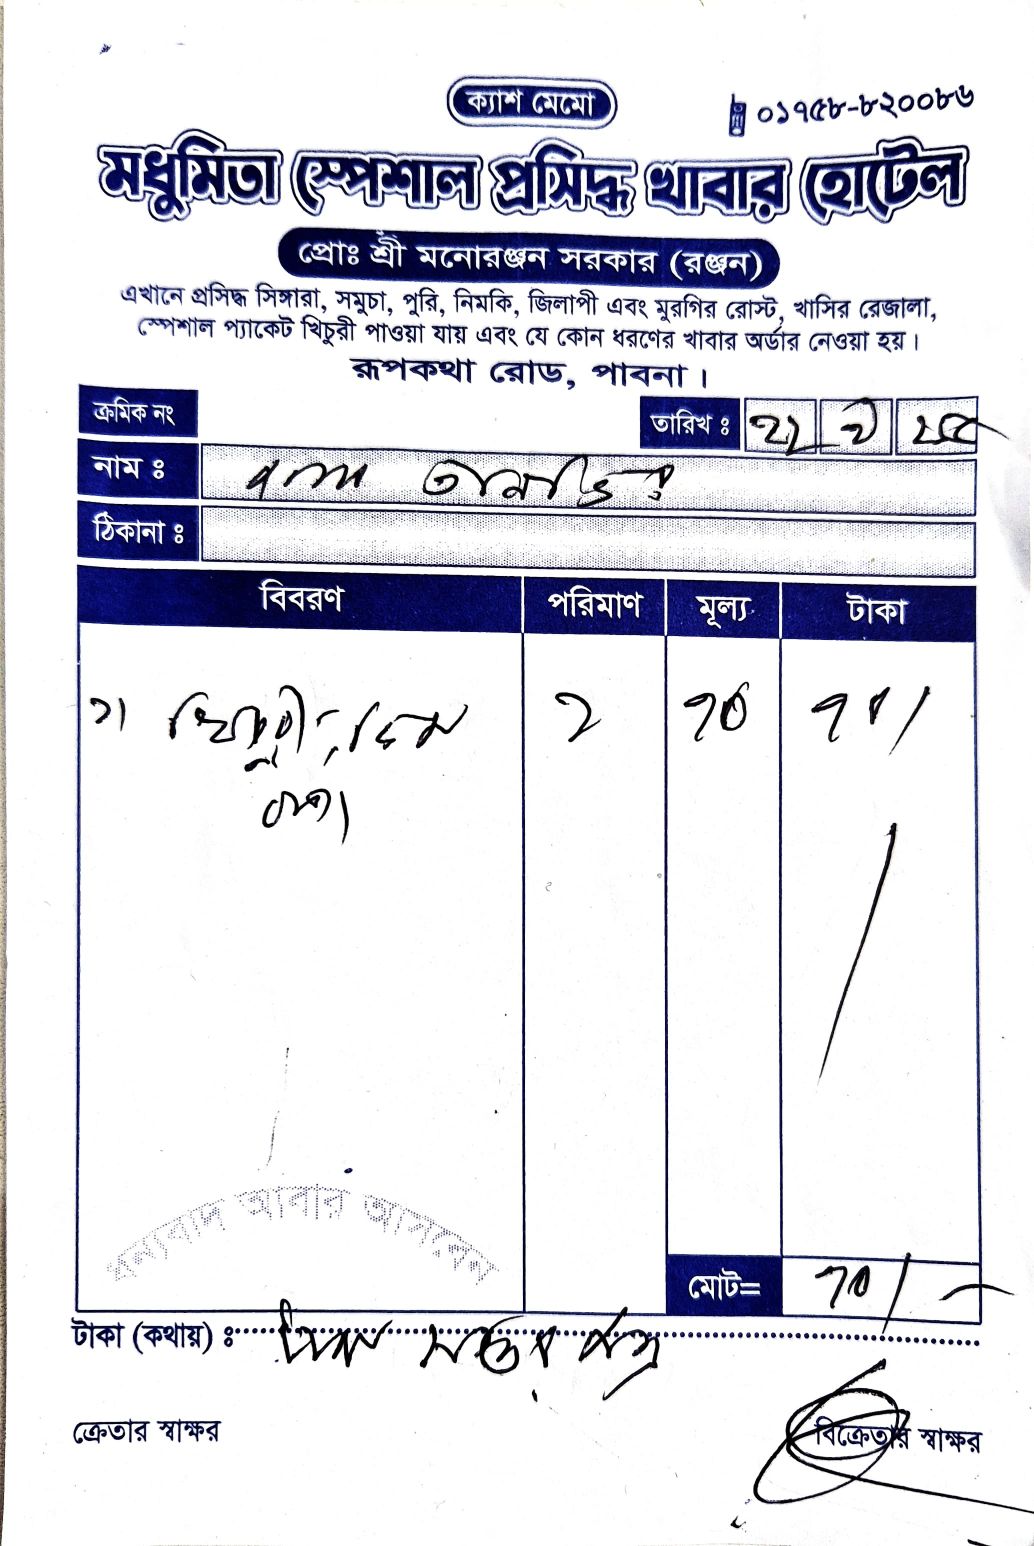 ক্যাশ মেমো
০১৭৫৮-৮২০০৮৬
মধুমিতা স্পেশাল প্রসিদ্ধ খাবার হোটেল
প্রোঃ শ্রী মনোরঞ্জন সরকার (রঞ্জন)
এখানে প্রসিদ্ধ সিঙ্গারা, সমুচা, পুরি, নিমকি, জিলাপী এবং মুরগির রোস্ট, খাসির রেজালা,
স্পেশাল প্যাকেট খিচুরী পাওয়া যায় এবং যে কোন ধরণের খাবার অর্ডার নেওয়া হয়।
রূপকথা রোড, পাবনা।
ক্রমিক নং
তারিখ ঃ
নাম ঃ তানভির
ঠিকানা ঃ
বিবরণ পরিমাণ মূল্য টাকা
১। খিচুরী, ডিম ৭০ ৭০/
ধন্যবাদ আবার আসবেন
মোট= ৭০/-
টাকা (কথায়) ঃ সত্তর মাত্র
ক্রেতার স্বাক্ষর বিক্রেতার স্বাক্ষর